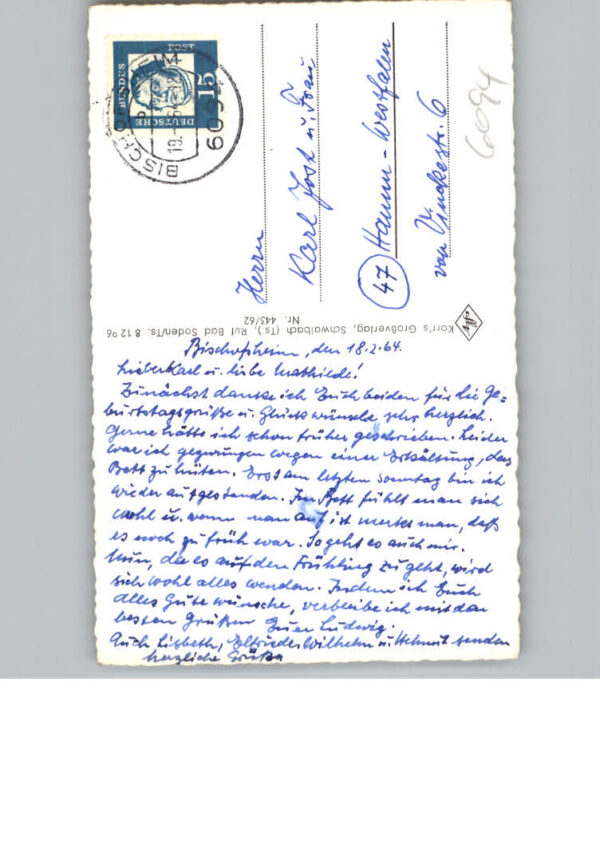 15
DEUTSCHE
BUNDES
POST
BISCHOFSHEIM
6094
Herrn
Karl Jost u. Frau
47 Hamm-Westfalen
von Vinckestr. 6
6094
Korr's Großverlag, Schwalbach (Ts.), Ruf Bad Soden/Ts. 8 12 96
Nr. 443/62
Bischofsheim, den 18.2.64.
Lieber Karl u. liebe Mathilde!
Zunächst danke ich Euch beiden für die Ge=
burtstagsgrüße u. Glückwünsche sehr herzlich.
Gerne hätte ich schon früher geschrieben. Leider
war ich gezwungen wegen einer Erkältung, das
Bett zu hüten. Erst am letzten Sonntag bin ich
wieder aufgestanden. Im Bett fühlt man sich
wohl u. wenn man auf ist merkt man, daß
es noch zu früh war. So geht es auch mir.
Nun, da es auf den Frühling zu geht, wird
sich wohl alles wenden. Indem ich Euch
alles Gute wünsche, verbleibe ich mit den
besten Grüßen Euer Ludwig.
Auch Lisbeth, Elfriede, Wilhelm u. Helmut senden
herzliche Grüße